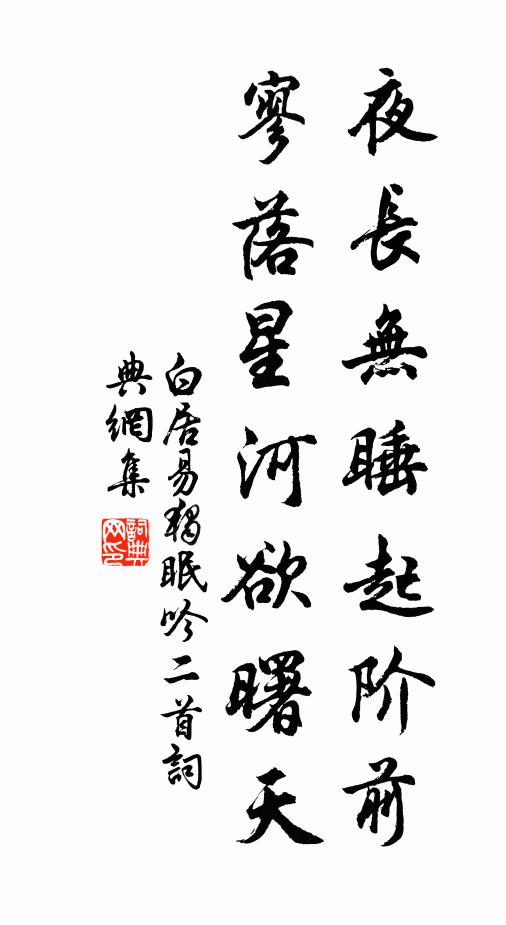 夜長無睡起阶前
寥落星河欲曙天
白居易獨眠吟二首詞
典網集
詞典網印